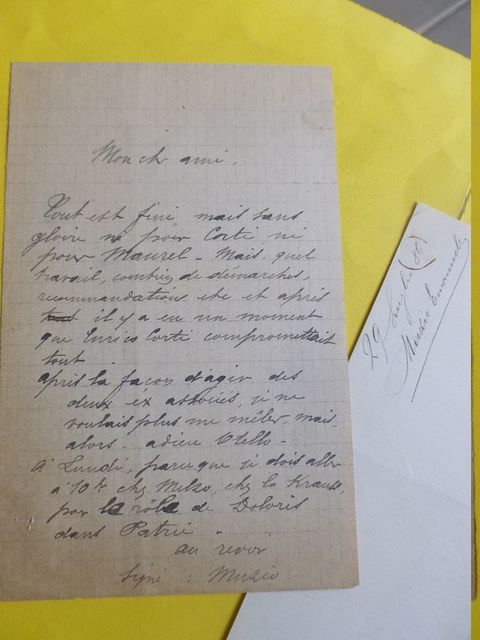 Mon ch ami.
Tout est fini mais sans
gloire ni pour Corti ni
pour Maurel - Mais quel
travail, combien de démarches,
recommandations etc et après
il y a eu un moment
que Enrico Corti compromettait
tout.
après la façon d'agir des
deux ex associés, je ne
voulais plus me mêler, mais
alors - adieu Otello -
à Lundi, parce que je dois aller
à 10 h chez chez la Krauss,
pour le rôle de Dolorès
dans Patrie.
au revoir
Signé : Muzio
29 (86)
Muzio Emanuele